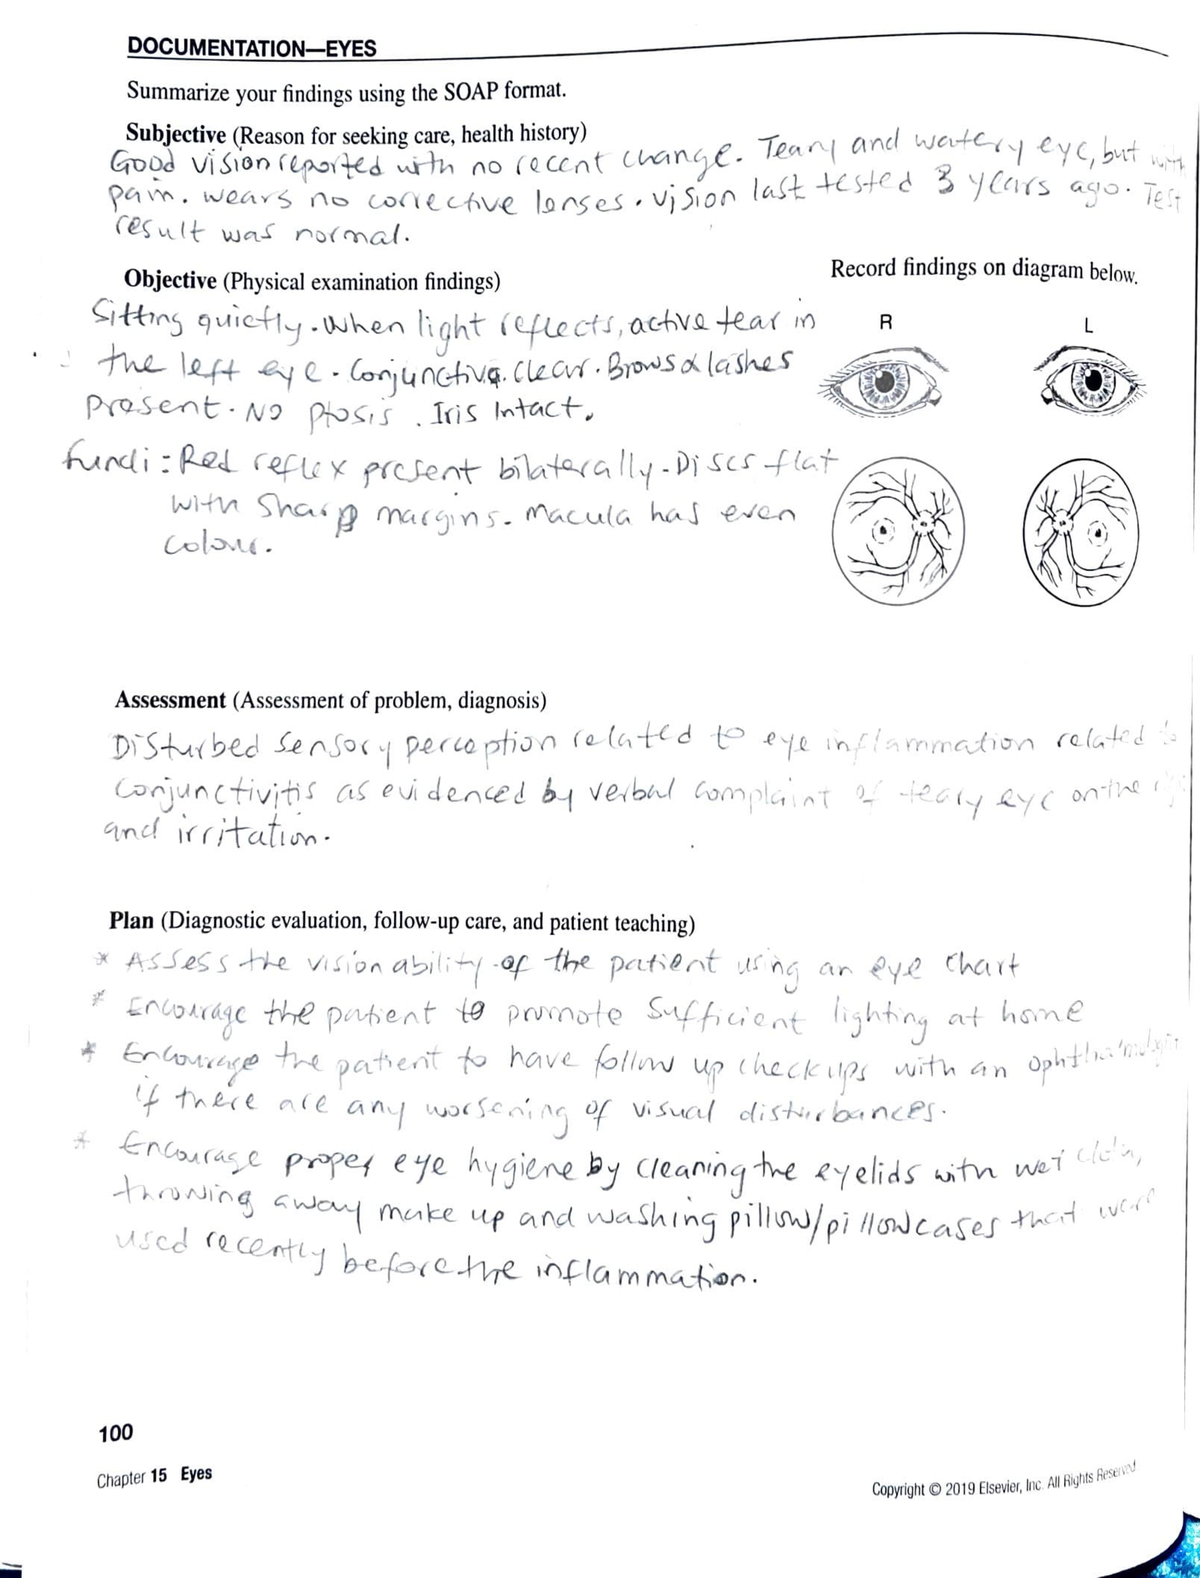 DOCUMENTATION—EYES
Summarize your findings using the SOAP format.
Subjective (Reason for seeking care, health history)
Good vision reported with no recent change. Teary and watery eye, but with
pain. wears no corrective lenses. vision last tested 3 years ago. Test
result was normal.
Objective (Physical examination findings)
Record findings on diagram below.
Sitting quietly. when light reflects, active tear in
the left eye. Conjunctiva clear. Brows & lashes
Present. No ptosis. Iris Intact.
R L
Fundi: Red reflex present bilaterally. Discs flat
with Sharp margins. Macula has even
colour.
Assessment (Assessment of problem, diagnosis)
Disturbed sensory perception related to eye inflammation related to
Conjunctivitis as evidenced by verbal complaint of teary eye on the
and irritation.
Plan (Diagnostic evaluation, follow-up care, and patient teaching)
* Assess the vision ability of the patient using an eye chart
* Encourage the patient to promote Sufficient lighting at home
* Encourage the patient to have follow up checkups with an
if there are any worsening of visual disturbances.
* Encourage proper eye hygiene by cleaning the eyelids with wet cloth,
throwing away make up and washing pillow/pillowcases that were
used recently before the inflammation.
100
Chapter 15 Eyes
Copyright © 2019 Elsevier, Inc. All Rights Reserved